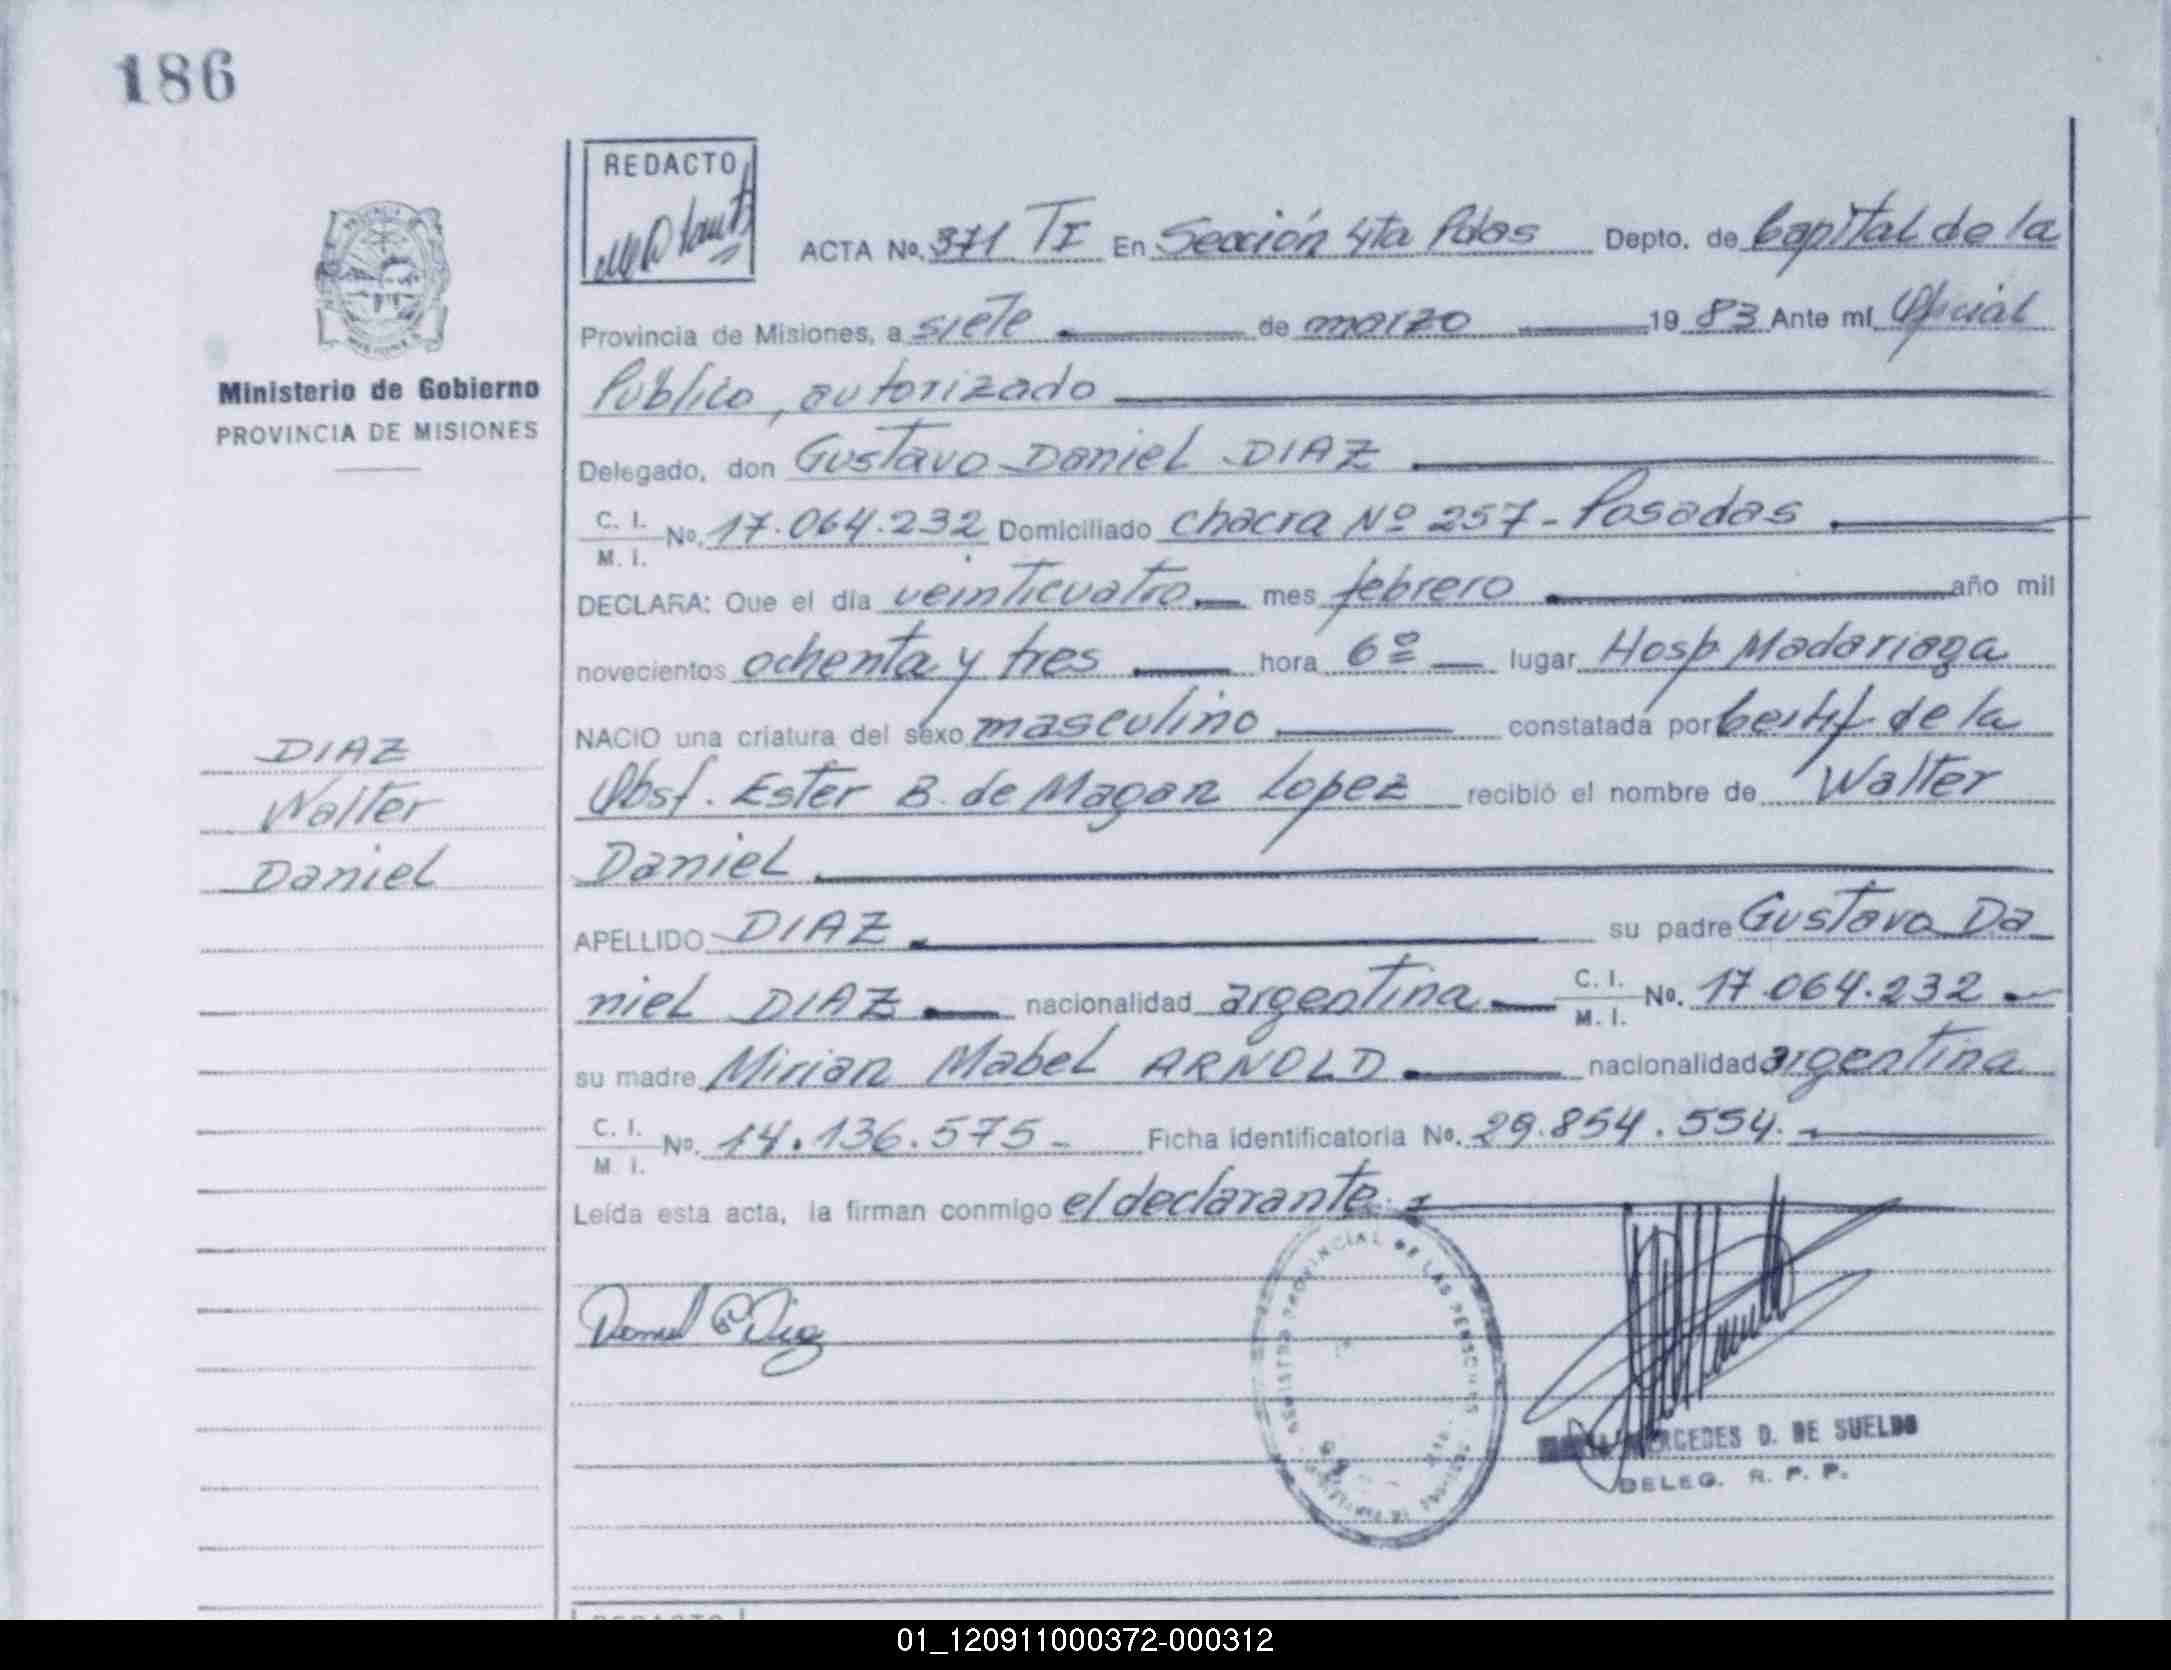 186
REDACTO
ACTA No. 371 TI En Sección 4ta Pdas Depto. de Capital de la
Provincia de Misiones, a siete de marzo 1983 Ante mí Oficial
Público, autorizado
Ministerio de Gobierno
PROVINCIA DE MISIONES
Delegado, don Gustavo Daniel DIAZ
C. I. M. I. No. 17.064.232 Domiciliado chacra Nº 257 - Posadas
DECLARA: Que el día veinticuatro mes febrero año mil
novecientos ochenta y tres hora 6º lugar Hosp. Madariaga
NACIO una criatura del sexo masculino constatada por Certif. de la
Obst. Ester B. de Magan Lopez recibió el nombre de Walter
Daniel
DIAZ
Walter
Daniel
APELLIDO DIAZ su padre Gustavo Da
niel DIAZ nacionalidad argentina C. I. M. I. No. 17.064.232
su madre Mirian Mabel ARNOLD nacionalidad argentina
C. I. M. I. No. 14.136.575 - Ficha identificatoria No. 29.854.554.
Leída esta acta, la firman conmigo el declarante.
Daniel G Diaz
PROVINCIAL DE LAS PERSONAS
MERCEDES D. DE SUELDO
DELEG. R. P. P.
REDACTO
01_120911000372-000312